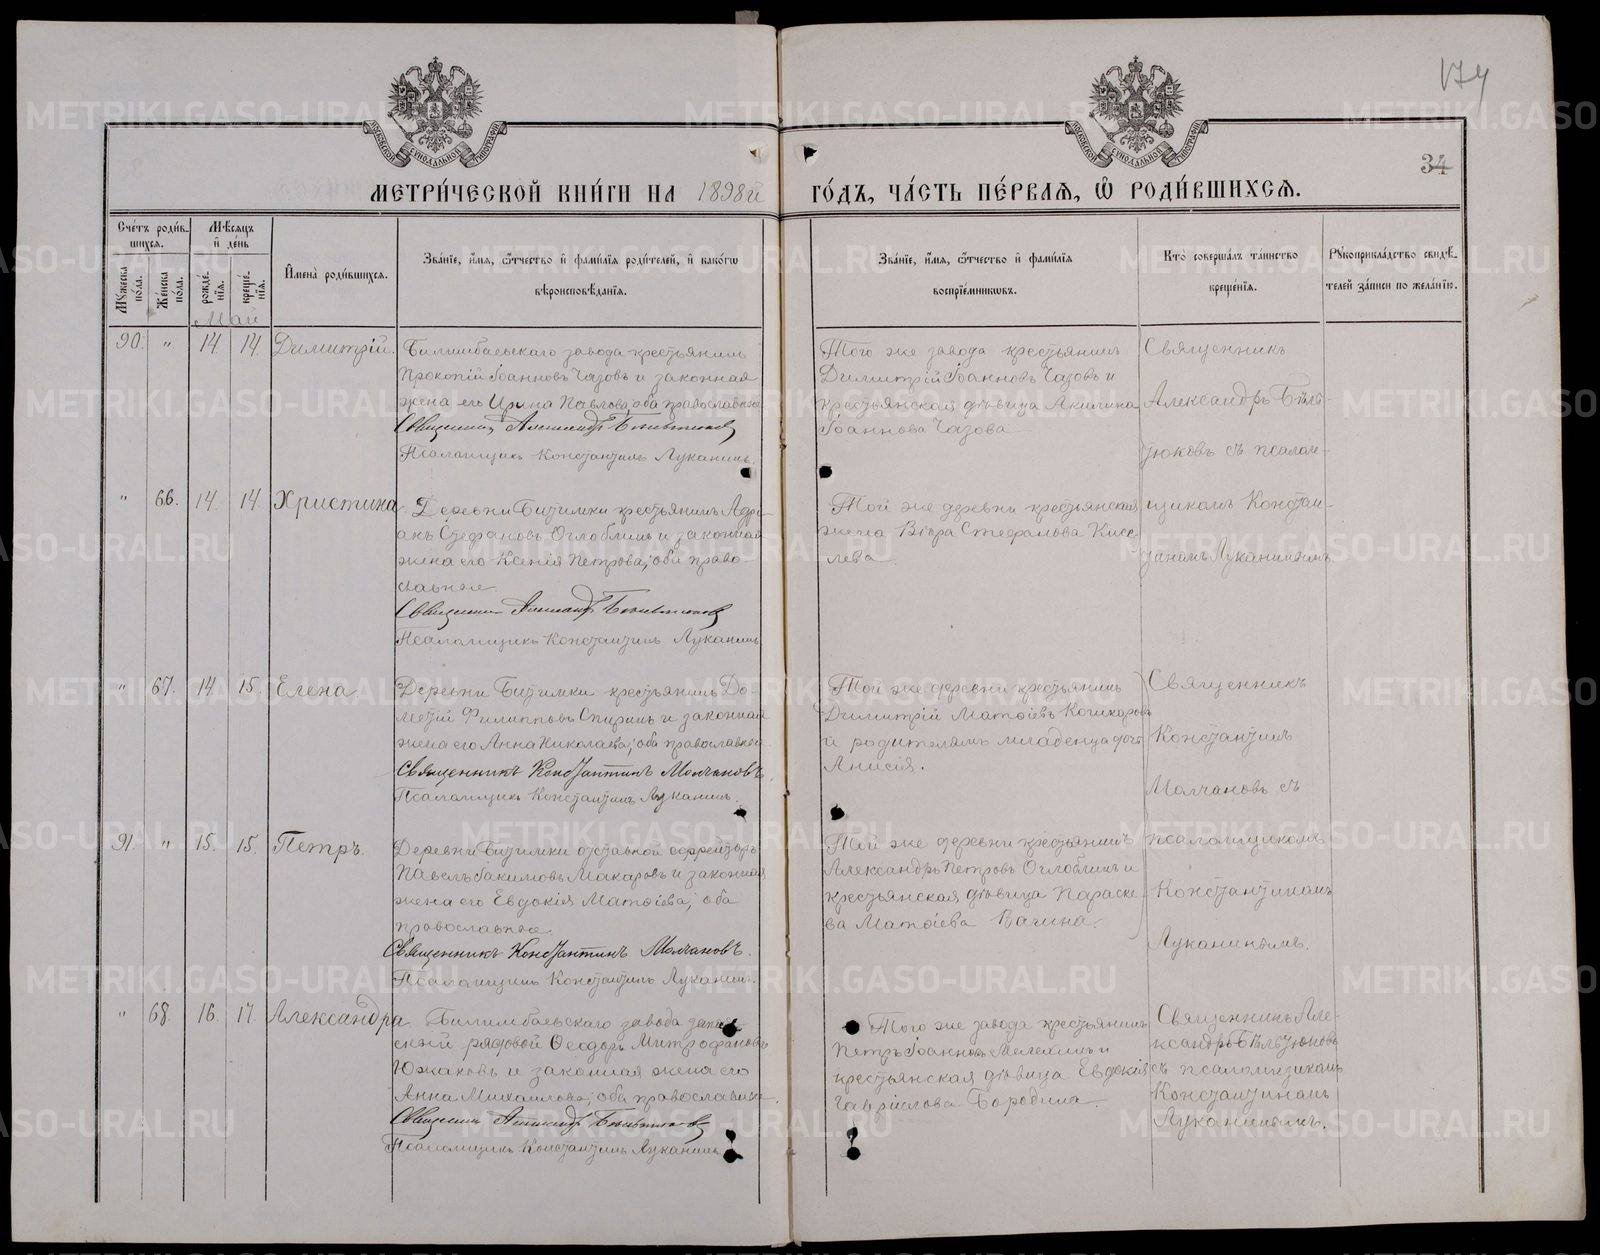 174
34
МОСКОВСКОЙ СѴНОДАЛЬНОЙ ТИПОГРАФІИ
МОСКОВСКОЙ СѴНОДАЛЬНОЙ ТИПОГРАФІИ
МЕТРИ́ЧЕСКОЙ КНИ́ГИ НА 1898й ГО́ДЪ, ЧА́СТЬ ПЕ́РВАЯ, Ѿ РОДИ́ВШИХСЯ.
Сче́тъ роди́в-
шихся.
Мѣ́сяцъ
и́ де́нь
Мꙋ́жеска по́ла.
Же́нска по́ла.
рожде́-
нїѧ.
креще́-
нїѧ.
И҆мена̀ роди́вшихся.
Зва́нїе, и҆́мѧ, ѻ҆́тчество и҆ фами́лїѧ роди́телей, и҆ како́гѡ
вѣроисповѣ́данїѧ.
Зва́нїе, и҆́мѧ, ѻ҆́тчество и҆ фами́лїѧ
воспрїе́мниковъ.
Кто̀ соверша́лъ та́инство
креще́нїѧ.
Рꙋкоприкла́дство свидѣ́-
телей за́писи по жела́нїю.
Май
90. " 14 14 Димитрій.
Билимбаевскаго завода крестьянинъ
Прокопій Іоанновъ Чазовъ и законная
жена его Ирина Павлова, оба православные
Священник Александр Бѣльтюков
Псаломщикъ Константинъ Луканинъ.
Того же завода крестьянинъ
Димитрій Іоанновъ Чазовъ и
крестьянская дѣвица Акилина
Іоаннова Чазова
Священникъ
Александръ Бѣль-
тюковъ съ псалом-
щикомъ Констан-
тиномъ Луканинымъ.
" 66. 14 14 Христина
Деревни Битимки крестьянинъ Адрі-
анъ Стефановъ Оглоблинъ и законная
жена его Ксенія Петрова, оба право-
славные
Священник Александр Бѣльтюков
Псаломщикъ Константинъ Луканинъ
Той же деревни крестьянская
жена Вѣра Стефанова Кисе-
лева
" 67. 14 15. Елена
Деревни Битимки крестьянинъ До-
метій Филипповъ Спиринъ и законная
жена его Анна Николаева, оба православные
Священникъ Константинъ Молчановъ.
Псаломщикъ Константинъ Луканинъ.
Той же деревни крестьянинъ
Димитрій Матѳіевъ Кошкаровъ
и родителямъ младенца дочь
Анисія.
Священникъ
Константинъ
Молчановъ съ
псаломщикомъ
Константиномъ
Луканинымъ.
91. " 15. 15. Петръ.
Деревни Битимки отставной ефрейторъ
Павелъ Іакимовъ Макаровъ и законная
жена его Евдокія Матѳіева, оба
православные.
Священникъ Константинъ Молчановъ.
Псаломщикъ Константинъ Луканинъ.
Той же деревни крестьянинъ
Александръ Петровъ Оглоблинъ и
крестьянская дѣвица Параске-
ва Матѳіева Вагина.
" 68. 16. 17. Александра
Билимбаевскаго завода запас-
ный рядовой Ѳеодоръ Митрофановъ
Южаковъ и законная жена его
Анна Михаилова, оба православные.
Священник Александр Бѣльтюков
Псаломщикъ Константинъ Луканинъ
Того же завода крестьянинъ
Петръ Іоанновъ Мелехинъ и
крестьянская дѣвица Евдокія
Гавріилова Бородина
Священникъ Але-
ксандръ Бѣльтюковъ
съ псаломщикомъ
Константиномъ
Луканинымъ.